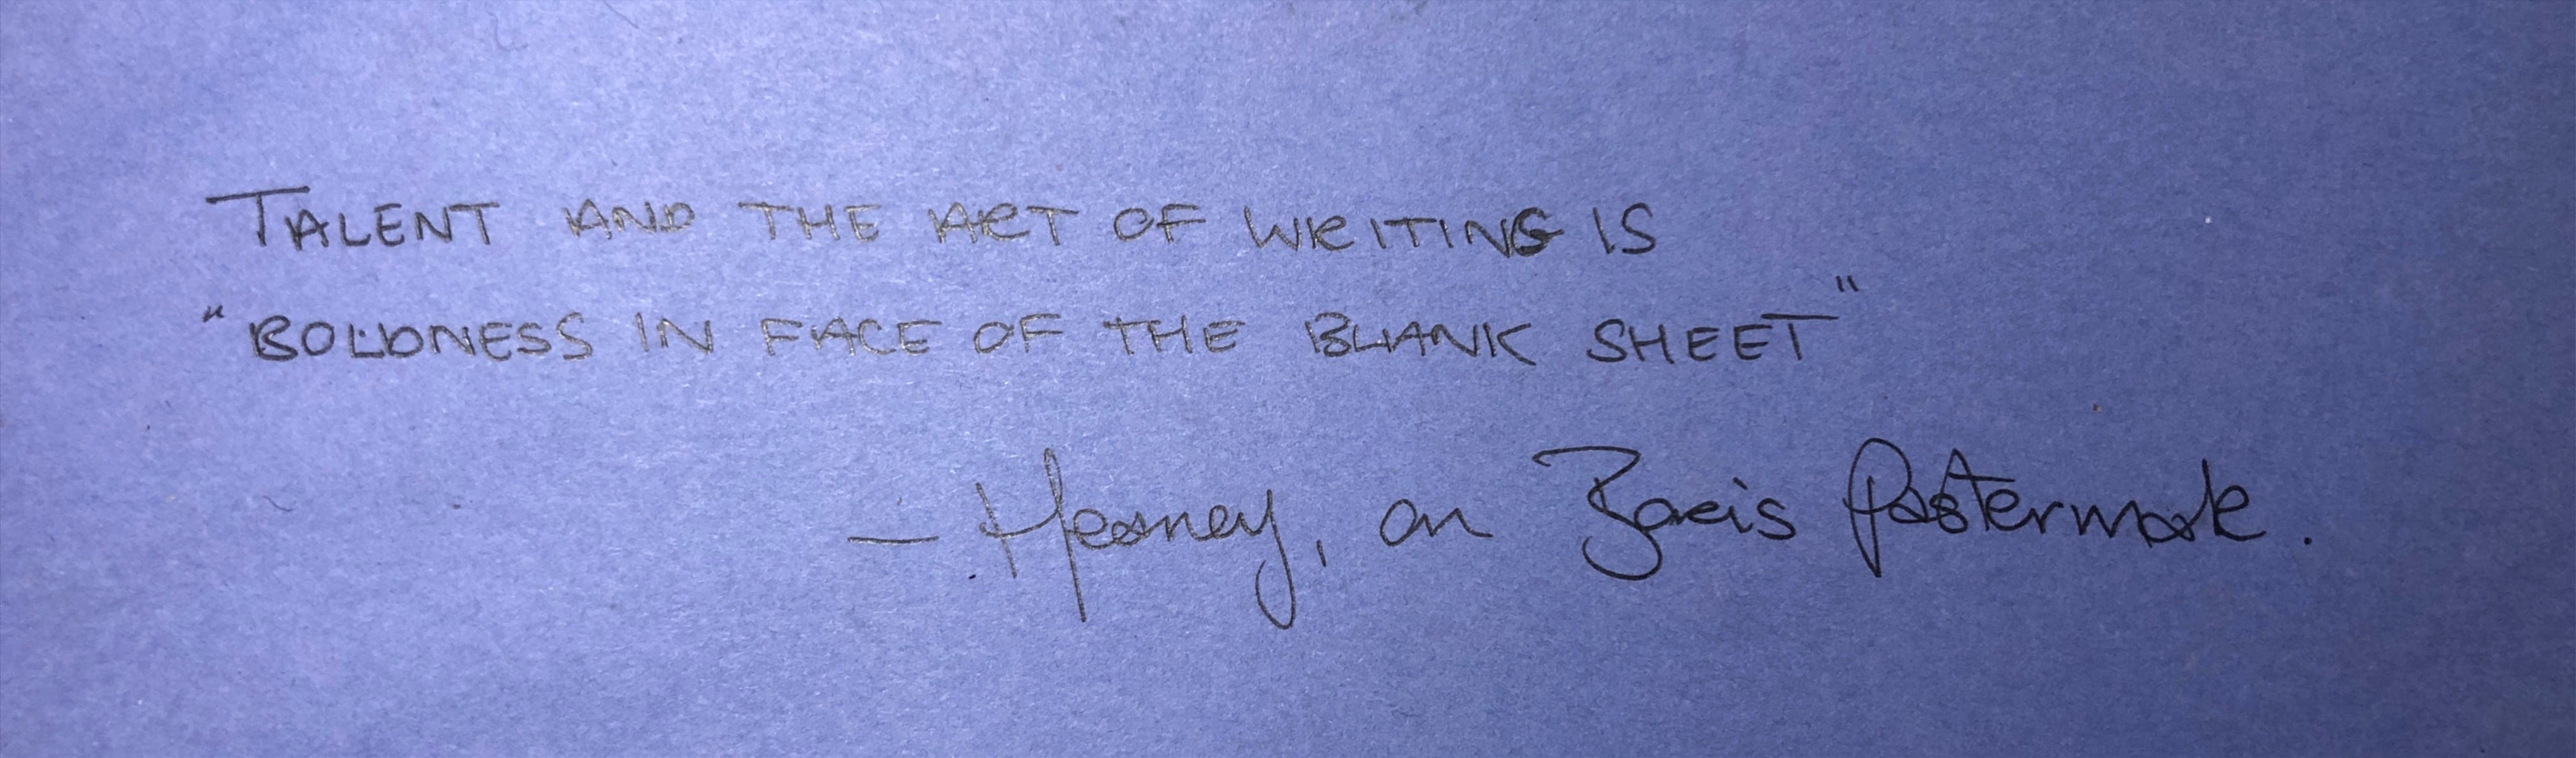 TALENT AND THE ART OF WRITING IS
"BOLDNESS IN FACE OF THE BLANK SHEET"
— Heaney, on Boris Pasternak.